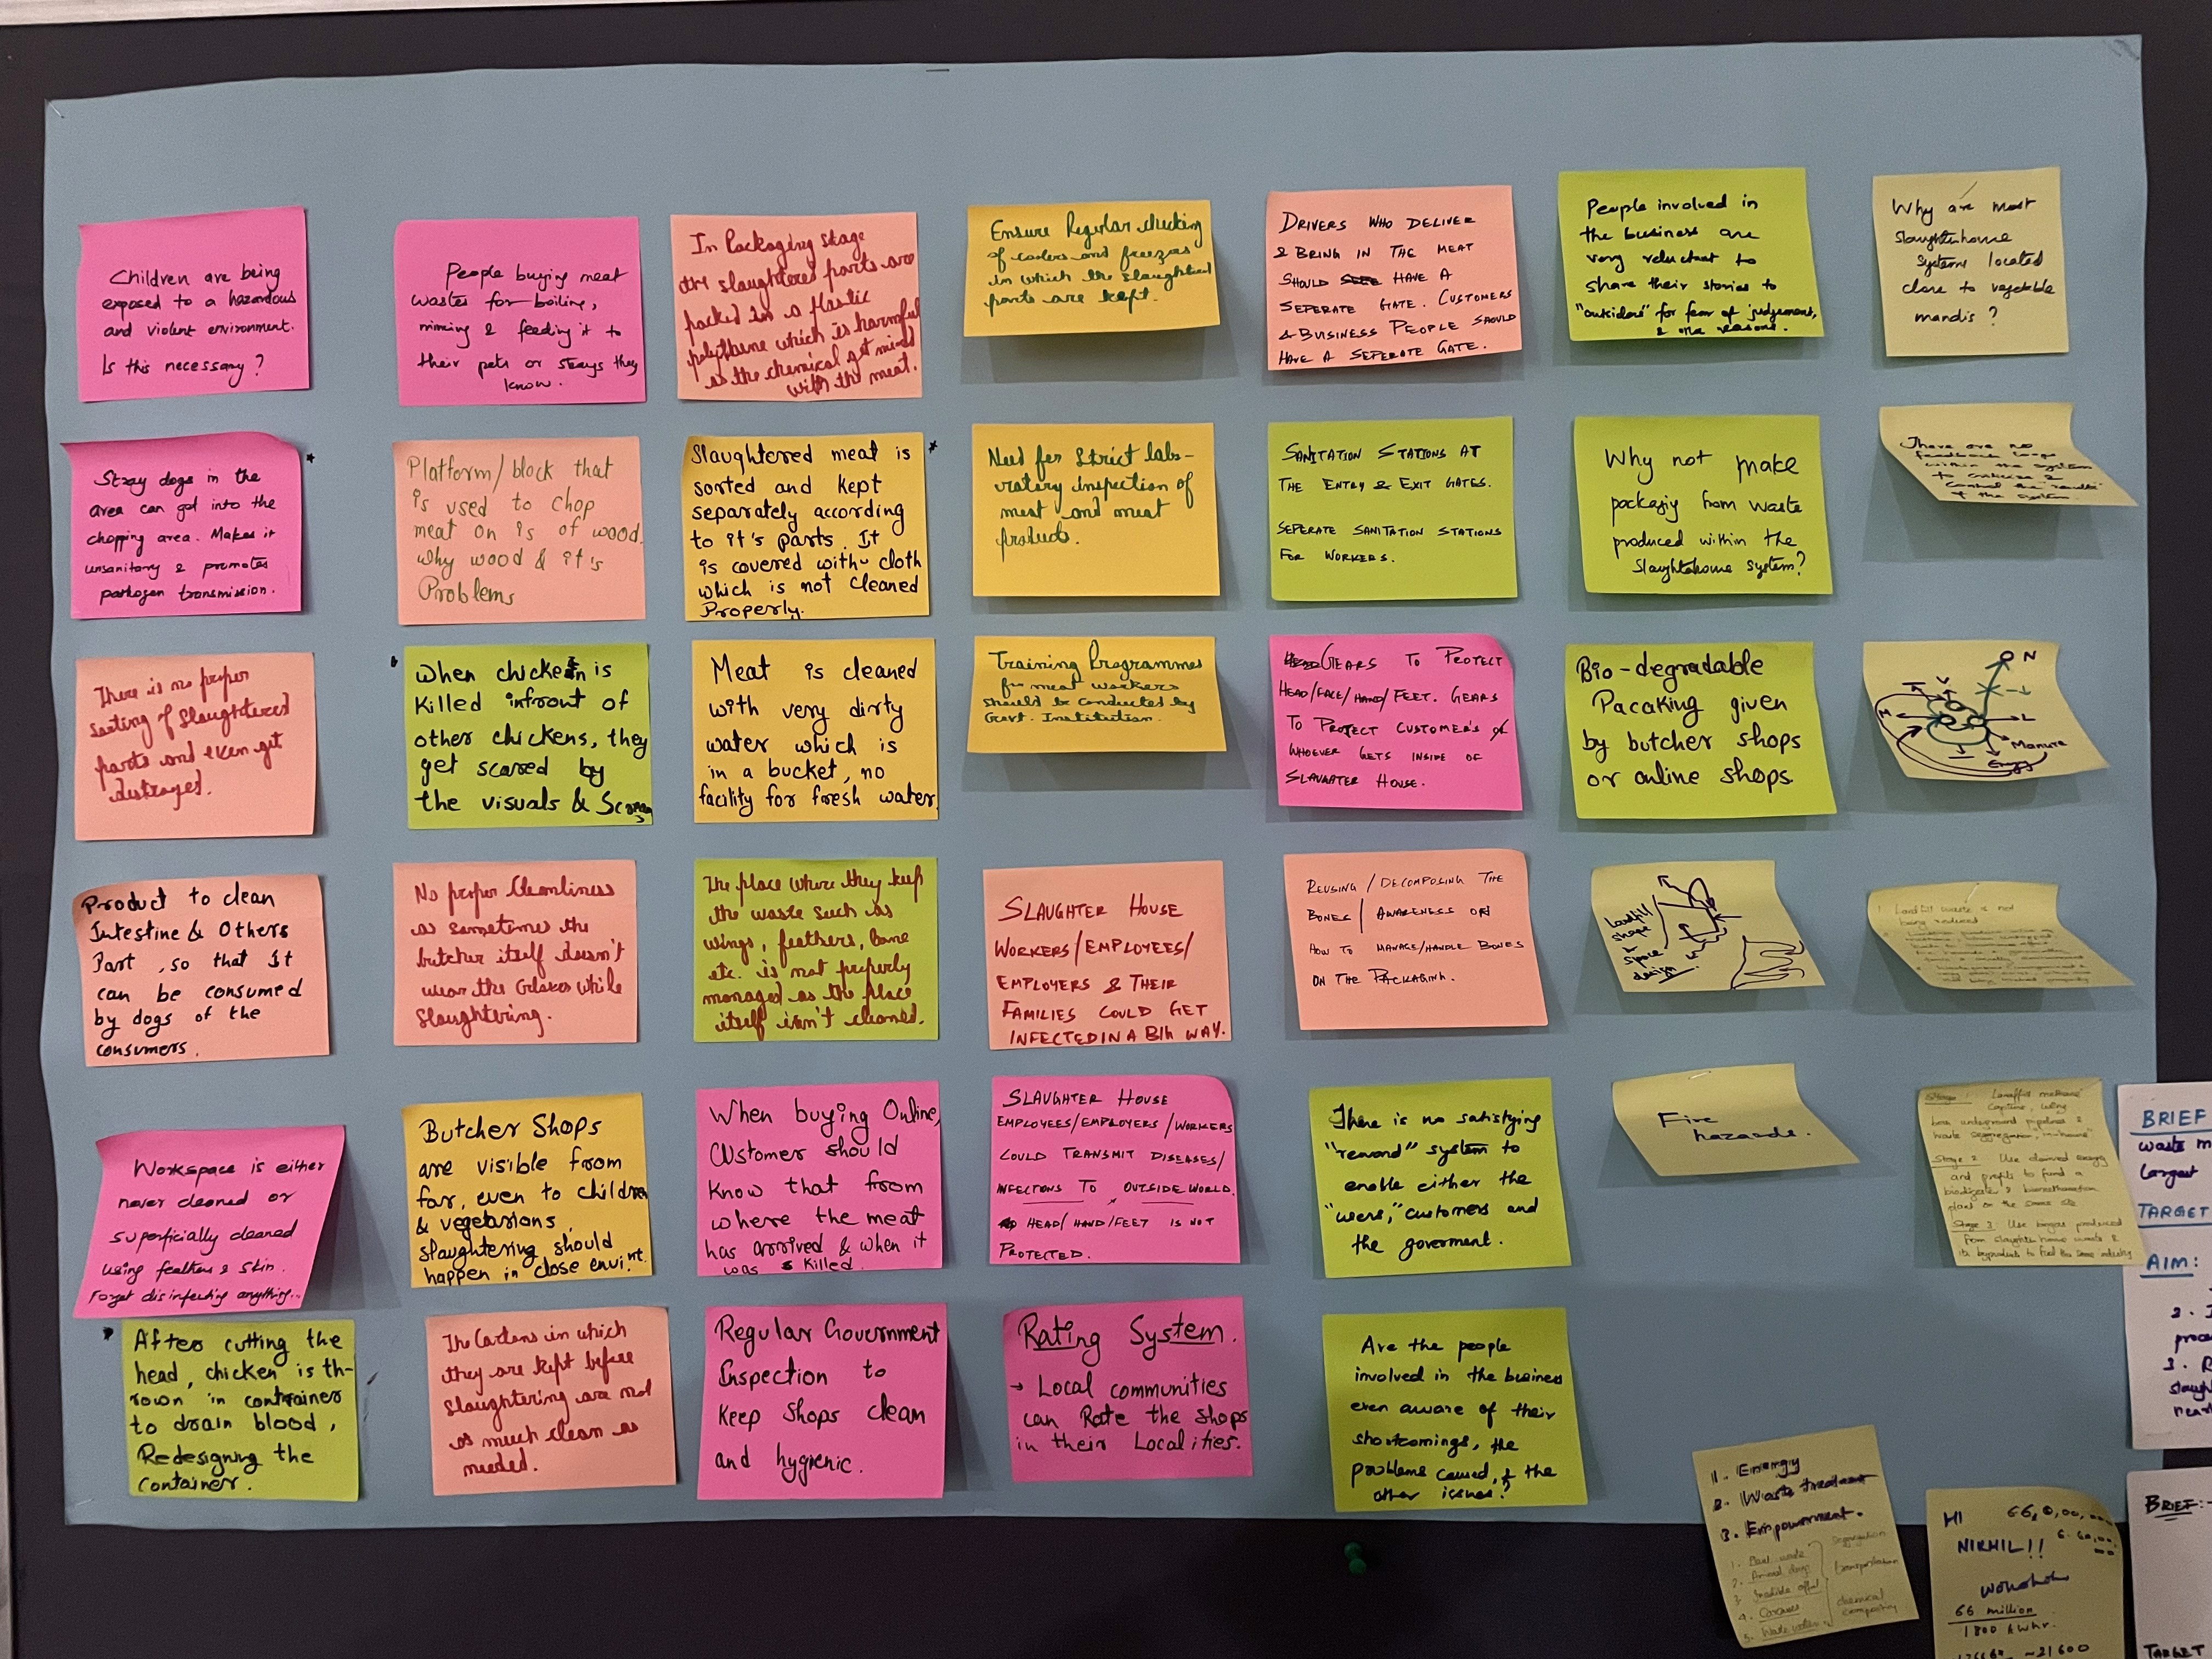 Children are being
exposed to a hazardous
and violent environment.
Is this necessary?
People buying meat
wastes for boiling,
mixing & feeding it to
their pets or strays they
know.
In Packaging stage
the slaughtered parts are
packed in a plastic
polythene which is harmful
as the chemical get mixed
with the meat.
Ensure Regular checking
of coolers and freezers
in which the slaughtered
parts are kept.
DRIVERS WHO DELIVER
& BRING IN THE MEAT
SHOULD HAVE A
SEPERATE GATE. CUSTOMERS
& BUSINESS PEOPLE SHOULD
HAVE A SEPERATE GATE.
People involved in
the business are
very reluctant to
share their stories to
"outsiders" for fear of judgement,
& other reasons.
Why are most
slaughterhouse
systems located
close to vegetable
mandis?
Stray dogs in the
area can get into the
chopping area. Makes it
unsanitary & promotes
pathogen transmission.
Platform/block that
is used to chop
meat on is of wood.
why wood & it's
Problems
Slaughtered meat is
sorted and kept
separately according
to it's parts. It
is covered with cloth
which is not cleaned
Properly.
Need for strict lab-
ratory inspection of
meat and meat
products.
SANITATION STATIONS AT
THE ENTRY & EXIT GATES.
SEPERATE SANITATION STATIONS
FOR WORKERS.
Why not make
packagiy from waste
produced within the
slaughtehouse system?
There are no
feedback loops
within the system
to
control the "results"
of the system.
There is no proper
sorting of slaughtered
parts and even get
destroyed.
When chicken is
killed infront of
other chickens, they
get scared by
the visuals &
Meat is cleaned
with very dirty
water which is
in a bucket, no
facility for fresh water.
Training Programmes
for meat workers
should be conducted by
Govt. Institution.
GEARS TO PROTECT
HEAD/FACE/HAND/FEET. GEARS
TO PROTECT CUSTOMER'S
WHOEVER GETS INSIDE OF
SLAUGHTER HOUSE.
Bio-degradable
Pacaking given
by butcher shops
or online shops
N
V
L
Manure
Energy
Product to clean
Intestine & Others
Part, so that it
can be consumed
by dogs of the
consumers.
No proper cleanliness
as sometimes the
butcher itself doesn't
wear the Gloves while
Slaughtering.
The place where they keep
the waste such as
wings, feathers, bone
etc. is not properly
managed as the place
itself isn't cleaned.
SLAUGHTER HOUSE
WORKERS/EMPLOYEES/
EMPLOYERS & THEIR
FAMILIES COULD GET
INFECTED IN A BIG WAY.
REUSING / DECOMPOSING THE
BONES / AWARENESS ON
HOW TO MANAGE/HANDLE BONES
ON THE PACKAGING.
Landfill
shape
&
space
design
1. Landfill waste is not
being reduced
Workspace is either
never cleaned or
superficially cleaned
using feathers & skin.
Forget disinfecting anything...
Butcher Shops
are visible from
far, even to children
& vegetarians,
slaughtering should
happen in close envi.nt.
When buying Online,
Customer should
know that from
where the meat
has arrived & when it
was killed.
SLAUGHTER HOUSE
EMPLOYEES/EMPLOYERS/WORKERS
COULD TRANSMIT DISEASES/
INFECTIONS TO OUTSIDE WORLD.
HEAD/HAND/FEET IS NOT
PROTECTED.
There is no satisfying
"reward" system to
enable either the
"users," customers and
the goverment.
Fire
hazards.
Landfill methane
capture, using
underground pipelines &
waste segregation,
Stage 2: Use derived energy
and profits to fund a
biodigester & biomethanation
plant on the same site
Stage 3: Use biogas produced
from slaughter house waste &
its byproducts to fuel the same industry
BRIEF
waste m
largest
TARGET
AIM:
2. I
proce
3. R
slaugh
near
After cutting the
head, chicken is th-
rown in container
to drain blood,
Redesigning the
container.
The Cartons in which
they are kept before
slaughtering are not
as much clean as
needed.
Regular Government
Inspection to
keep shops clean
and hygienic.
Rating System.
→ Local communities
can Rate the shops
in their Localities.
Are the people
involved in the business
even aware of their
shortcomings, the
problems caused, & the
other issues?
1. Energy
2. Waste treatment
3. Empowerment.
1. Paul waste
2. Animal dung
3. Inedible offal
4. Carcass
5. Waste water
segregation
transportation
chemical
composting
HI
NIKHIL!!
66 million
1800 kwhr.
~21600
BRIEF:-
TARGET